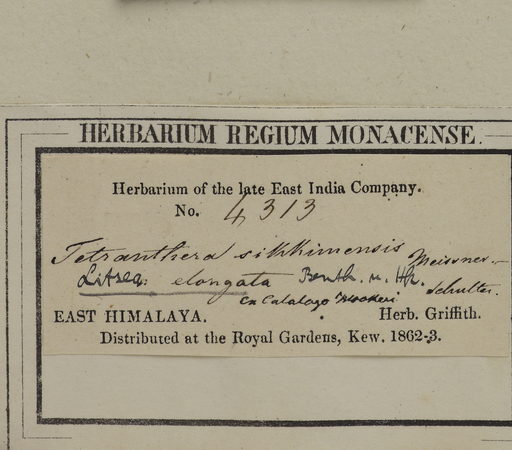 HERBARIUM REGIUM MONACENSE.
Herbarium of the late East India Company.
No. 4313
Tetranthera sikkimensis Meissner.
Litsea: elongata Benth. u. Hk.
Ex Catalogo Hookeri
EAST HIMALAYA. Herb. Griffith.
Distributed at the Royal Gardens, Kew. 1862-3.